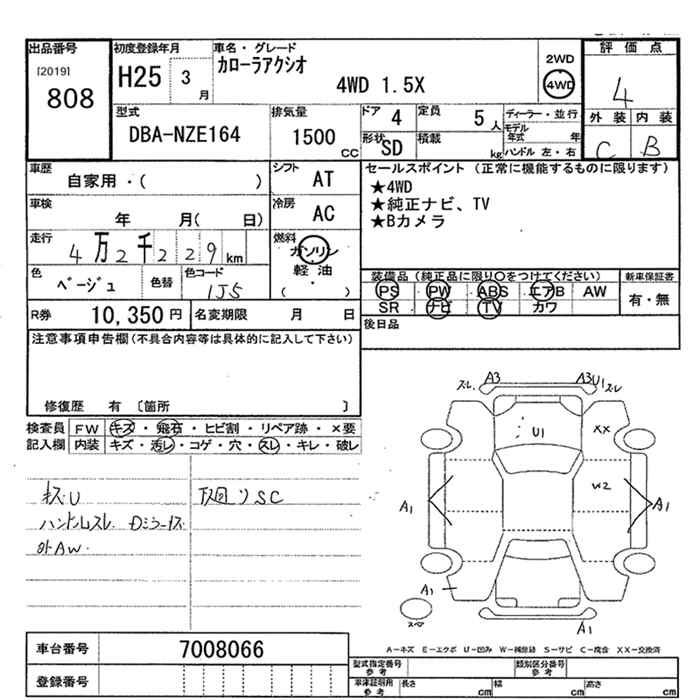 出品番号
[2019]
808
初度登録年月
H25 3 月
車名・グレード
カローラアクシオ
4WD 1.5X
2WD
4WD
評価点
4
外装 内装
C B
型式
DBA-NZE164
排気量
1500 CC
ドア 4
定員 5 人
形状 SD
積載 kg
ディーラー・並行
モデル年式 年
ハンドル 左・右
車歴
自家用・( )
シフト AT
車検
年 月( 日)
冷房 AC
走行
4万2千229km
燃料
ガソリン
軽油
( )
色
ベージュ
色替
色コード
1J5
R券 10,350円
名変期限 月 日
セールスポイント (正常に機能するものに限ります)
★4WD
★純正ナビ、TV
★Bカメラ
装備品(純正品に限り〇をつけてください)
PS PW ABS エアB AW
SR ナビ TV カワ
新車保証書
有・無
後日品
注意事項申告欄(不具合内容等は具体的に記入して下さい)
修復歴 有 〔箇所 〕
検査員 FW キズ・飛石・ヒビ割・リペア跡・×要
記入欄 内装 キズ・汚レ・コゲ・穴・スレ・キレ・破レ
キズU
ハンドルスレ Dミラーキズ
外AW.
下廻りSC
スレ A3
A3U1 スレ
U1
XX
W2
A1
A1
A1
A1
スペ
A-キズ E-エクボ U-凹み W-補修跡 S-サビ C-腐食 XX-交換済
車台番号 7008066
登録番号
型式指定番号 参考
類別区分番号 参考
車庫証明用 参考
長さ cm
幅 cm
高さ cm